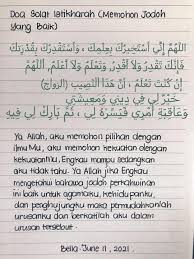 Doa Solat Istikharah (Memohon Jodoh
Yang Baik)
اللَّهُمَّ إِنِّي أَسْتَخِيْرُكَ بِعِلْمِكَ، وَأَسْتَقْدِرُكَ بِقُدْرَتِكَ
فَإِنَّكَ تَقْدِرُ وَلَا أَقْدِرُ وَتَعْلَمُ وَلَا أَعْلَمُ، اللَّهُمَّ إِنْ
كُنْتَ تَعْلَمُ أَنَّ هَذَا النَّصِيبَ (الزواج)
خَيْرٌ لِي فِي دِينِي وَمَعِيشَتِي
وَعَاقِبَةِ أَمْرِي فَيَسِّرْهُ لِي، ثُمَّ بَارِكْ لِي فِيهِ
Ya Allah, aku memohon pilihan dengan
ilmu Mu, aku memohon kekuatan dengan
kekuatanMu, Engkau mampu sedangkan
aku tidak tahu. Ya Allah jika Engkau
mengetahui bahawa jodoh perkahwinan
ini baik untuk agamaku, kehidupanku,
dan penghujungku maka permudahkanlah
urusanku dan berkatilah aku dalam
urusan tersebut.
Bella June 11, 2021.